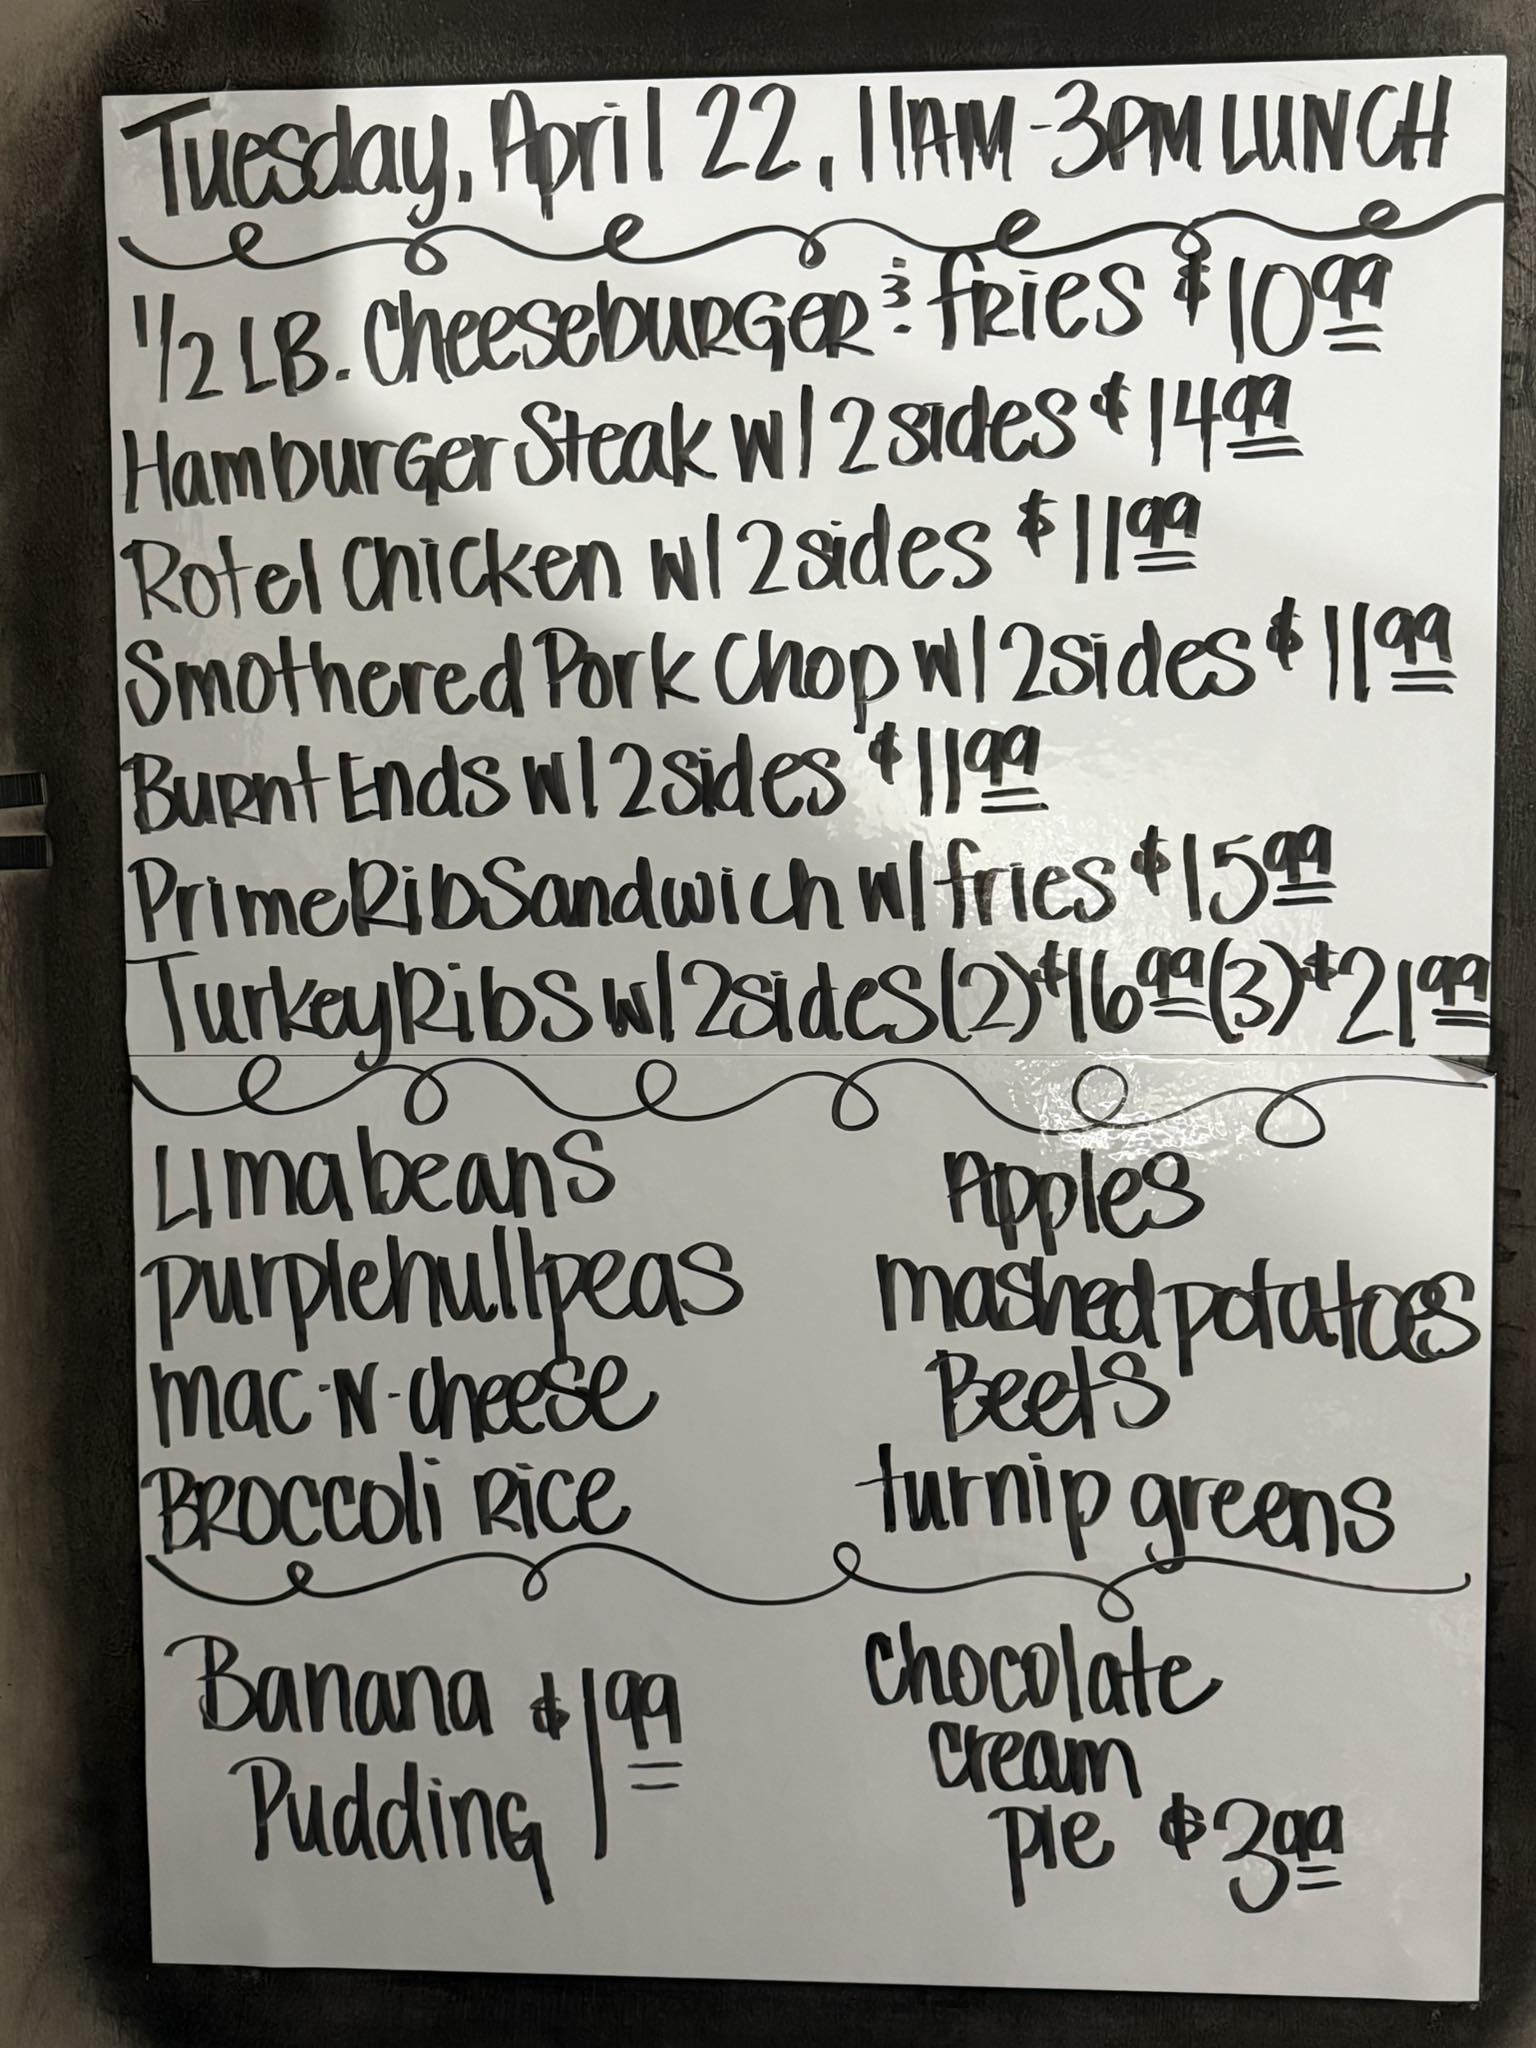 Tuesday, April 22, 11AM-3PM LUNCH
1/2 LB. Cheeseburger & fries $10.99
Hamburger Steak w/ 2 sides $14.99
Rotel Chicken w/ 2 sides $11.99
Smothered Pork Chop w/ 2 sides $11.99
Burnt Ends w/ 2 sides $11.99
Prime Rib Sandwich w/ fries $15.99
Turkey Ribs w/ 2 sides (2) $16.99 (3) $21.99
Lima beans
purplehull peas
mac-N-cheese
Broccoli Rice
Apples
mashed potatoes
Beets
turnip greens
Banana $1.99
Pudding
Chocolate
Cream
pie $3.99